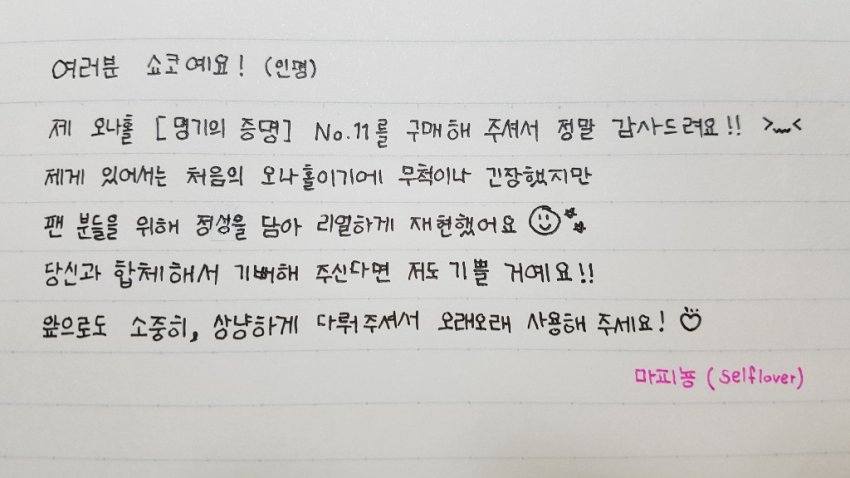 여러분 쇼코예요! (인명)
제 오나홀 [명기의 증명] No.11를 구매해 주셔서 정말 감사드려요!! >﹏<
제게 있어서는 처음의 오나홀이기에 무척이나 긴장했지만
팬 분들을 위해 정성을 담아 리얼하게 재현했어요
당신과 합체해서 기뻐해 주신다면 저도 기쁠 거예요!!
앞으로도 소중히, 상냥하게 다뤄주셔서 오래오래 사용해 주세요!
마피뇽 (selflover)